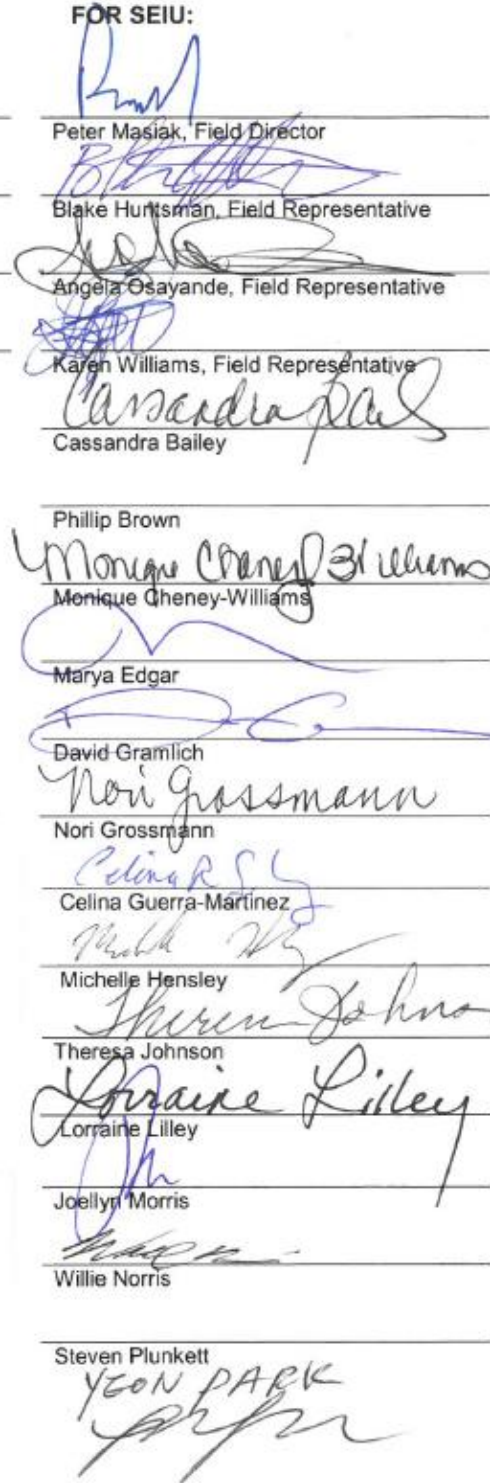 FOR SEIU:
Peter Masiak, Field Director
Blake Huntsman, Field Representative
Angela Osayande, Field Representative
Karen Williams, Field Representative
Cassandra
Cassandra Bailey
Phillip Brown
Monique
Monique Cheney-Williams
Marya Edgar
David Gramlich
Nori Grossmann
Nori Grossmann
Celina R
Celina Guerra-Martinez
Michelle Hensley
Theresa Johnson
Lorraine Lilley
Lorraine Lilley
Joellyn Morris
Willie Norris
Steven Plunkett
YEON PARK